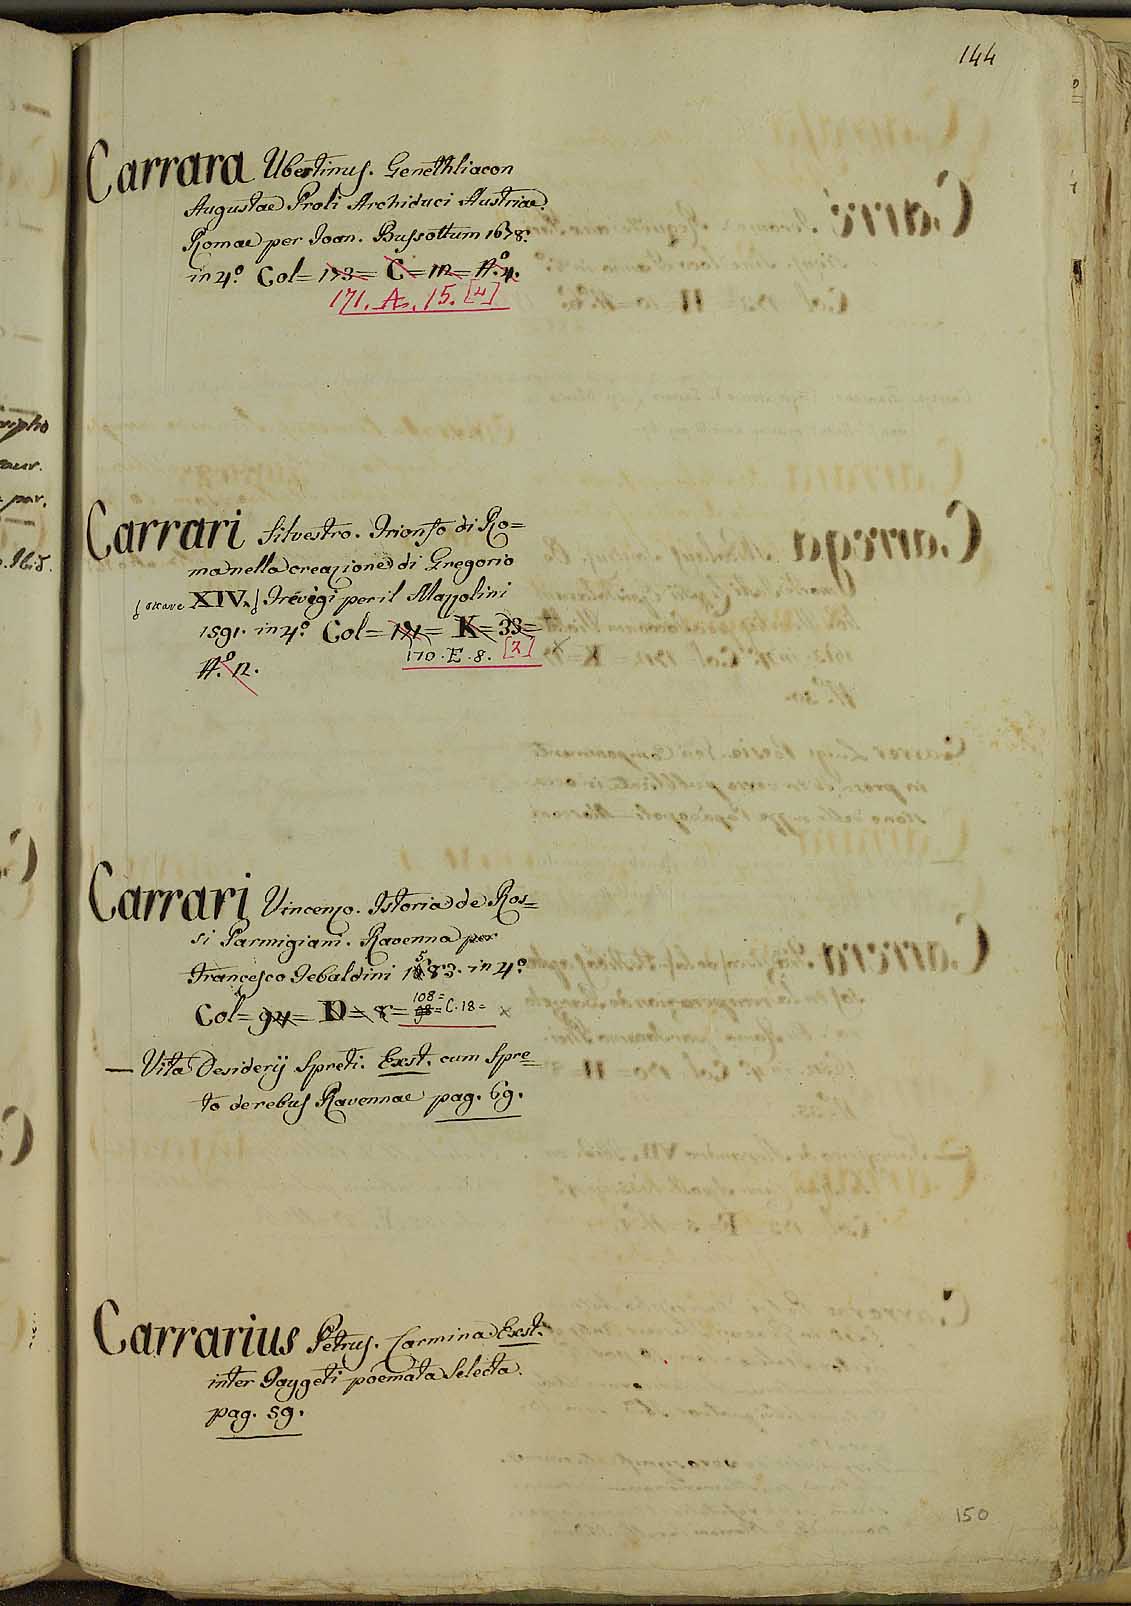 144
Carrara Ubertinus. Genethliacon
Augustae Proli Archiduci Austriae.
Romae per Joan. Bussottum 1678.
in 4.º Col= 173= C= 12= N.º 4.
171. A. 15. [4]
Carrari Silvestro. Trionfo di Ro=
ma nella creazione di Gregorio
XIV. Trévigi per il Mazzolini
1591. in 4.º Col= 171= K= 33=
170. E. 8. [2] x
N.º 12.
Carrari Vincenzo. Istoria de Ros=
si Parmigiani. Ravenna per
Francesco Tebaldini 1583. in 4.º
108=
Col= 94= D= 8= 98= C. 18= x
— Vita Desiderij Spreti. Exst. cum Spre=
to de rebus Ravennae pag. 69.
Carrarius Petrus. Carmina Exst.
inter Taygeti poëmata Selecta.
pag. 59.
150